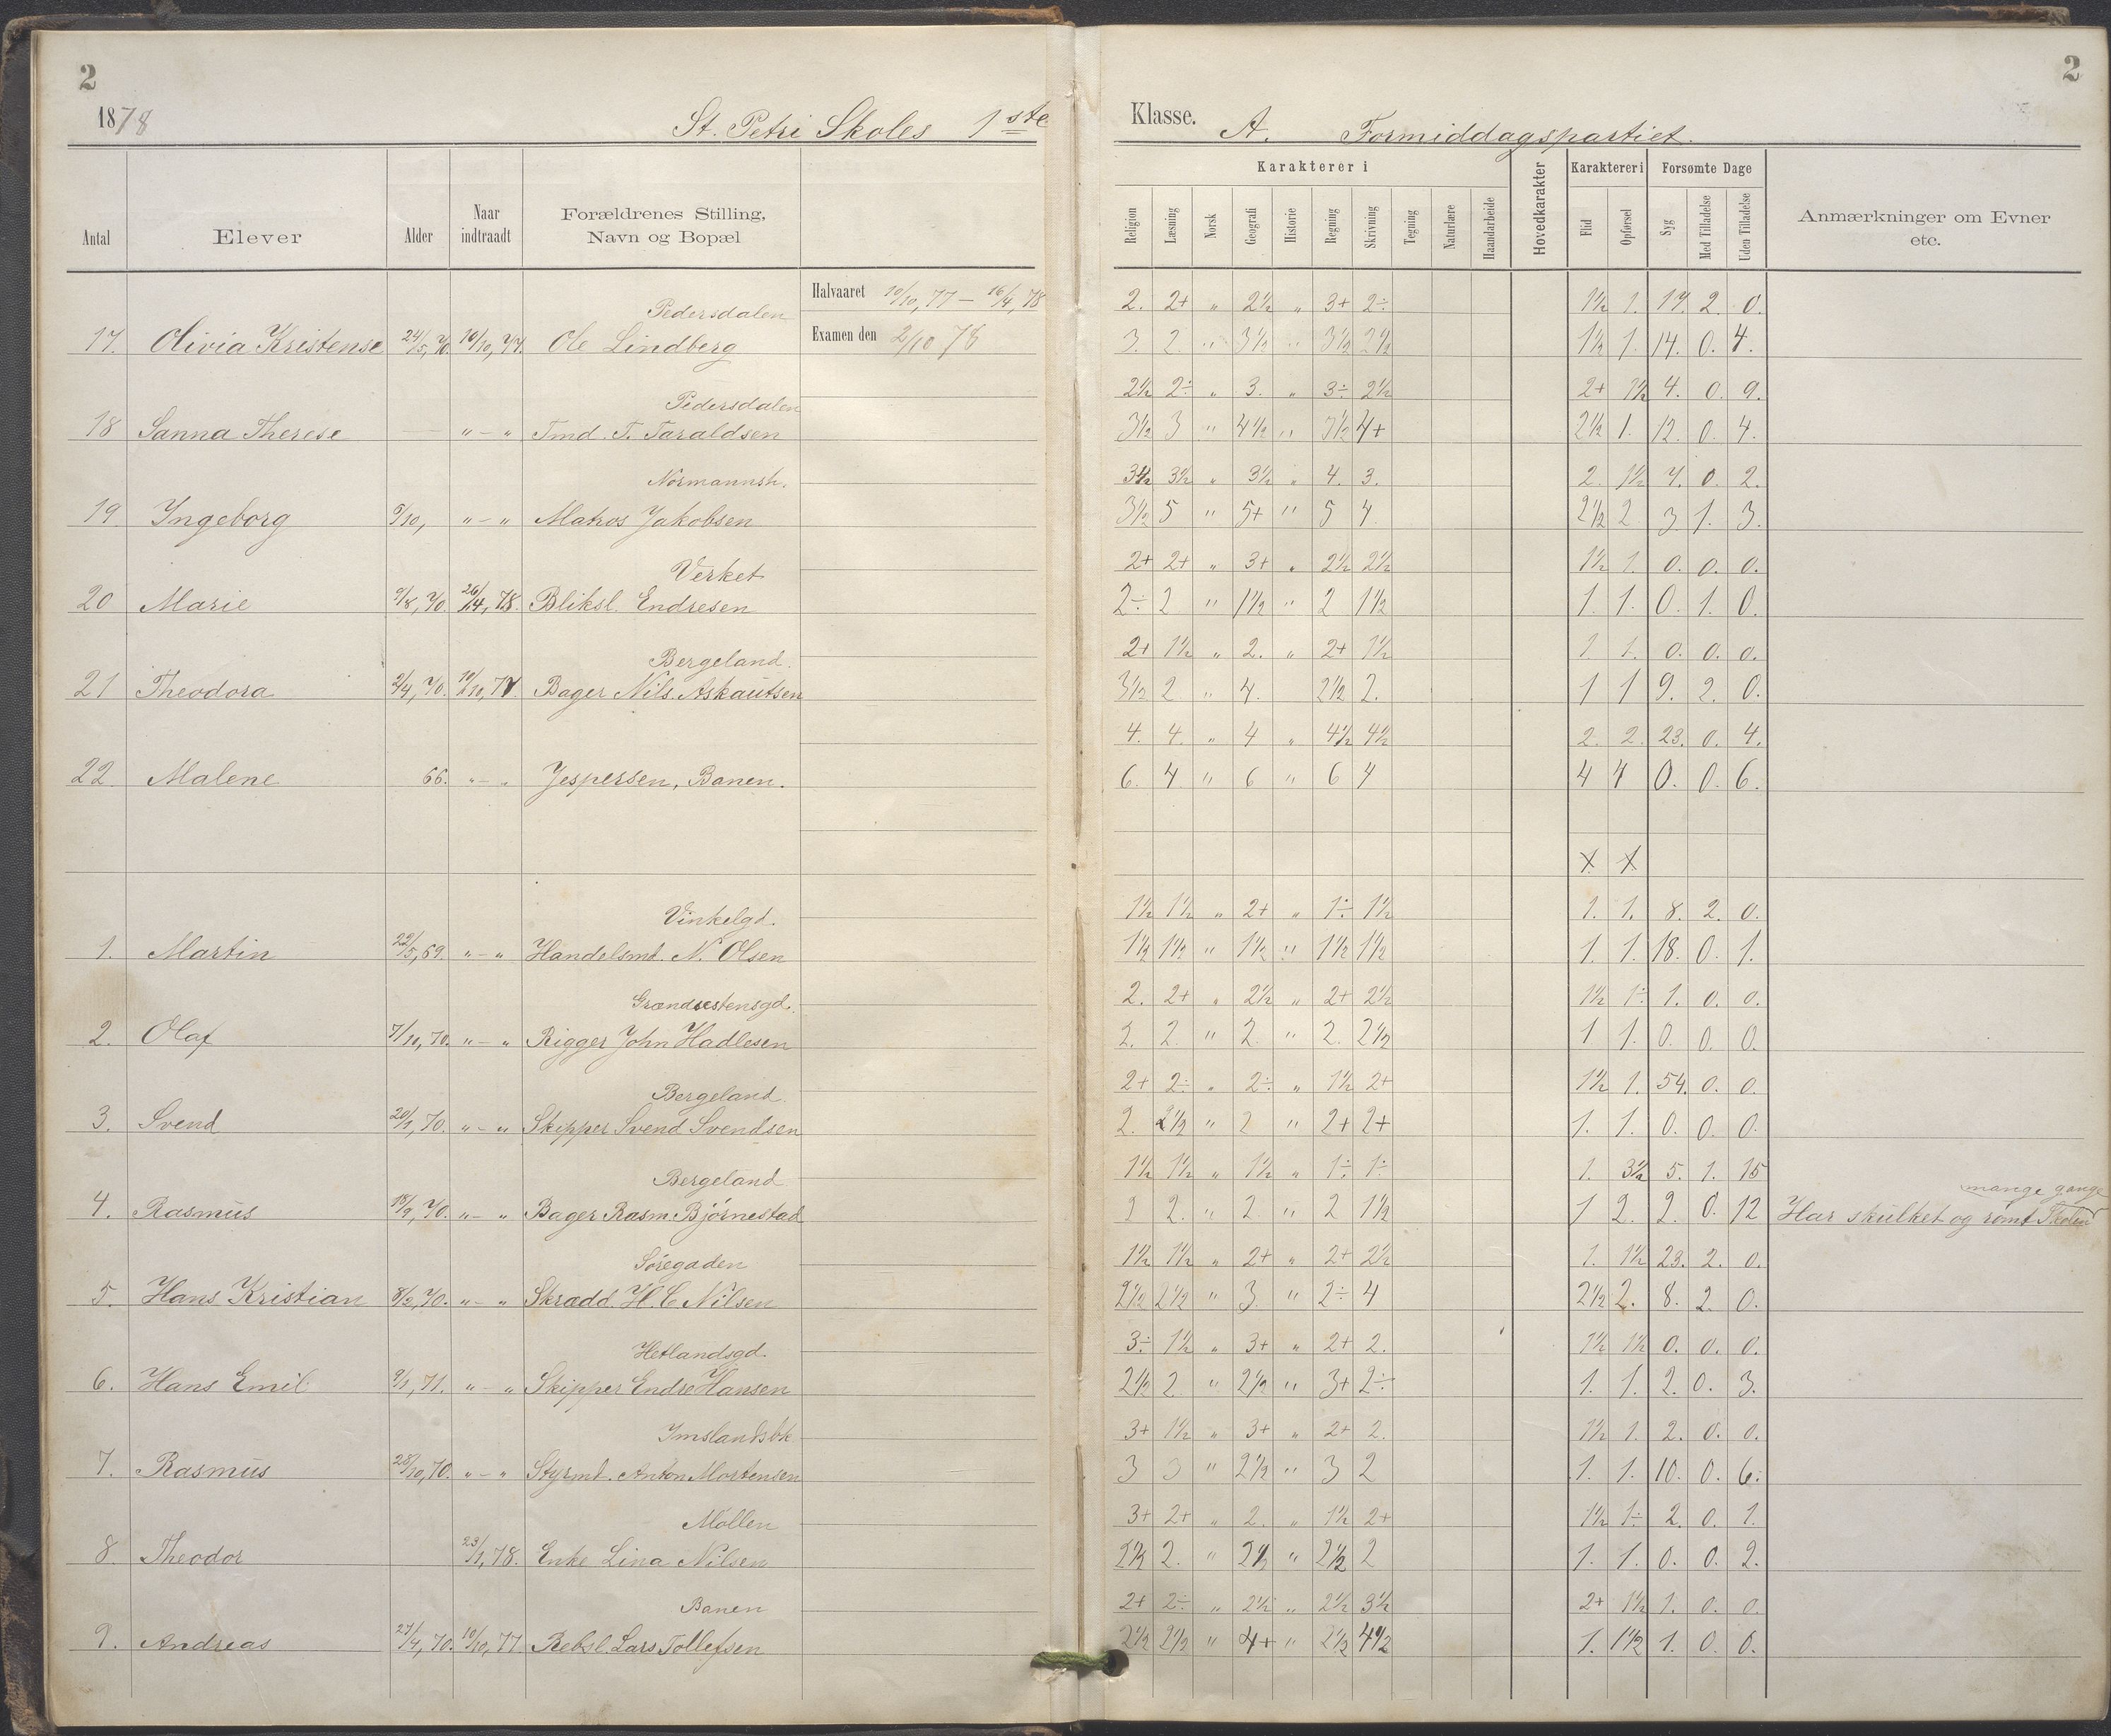 2 2
1878 St. Petri Skoles 1ste Klasse. A. Formiddagspartiet.
Karakterer i Karakterer i Forsømte Dage
Antal Elever Alder Naar indtraadt Forældrenes Stilling, Navn og Bopæl Religion Læsning Norsk Geografi Historie Regning Skrivning Tegning Naturlære Haandarbeide Hovedkarakter Flid Opførsel Syg Med Tilladelse Uden Tilladelse Anmærkninger om Evner etc.
Pedersdalen Halvaaret 10/10, 77 – 16/4, 78 2. 2+ " 2½ " 3+ 2÷ 1½ 1. 17. 2. 0.
17. Olivia Kristense 24/5, 70. 10/10, 77. Ole Lindberg Examen den 2/10 78 3. 2. " 3½ " 3½ 2½ 1½ 1. 14. 0. 4.
Pedersdalen 2½ 2÷ " 3. " 3÷ 2½ 2+ 1½ 4. 0. 9.
18 Sanna Therese — " – " Tmd. T. Taraldsen 3½ 3 " 4½ " 3½ 4+ 2½ 1. 12. 0. 4.
Normannsh. 3½ 3½ " 3½ " 4. 3. 2. 1½ 7. 0. 2.
19. Ingeborg 9/10, " – " Matros Jakobsen 3½ 5 " 5+ " 5 4 2½ 2. 3 1. 3.
Verket 2+ 2+ " 3+ " 2½ 2½ 1½ 1. 0. 0. 0.
20 Marie 9/8, 70. 26/4, 78. Bliksl. Endresen 2÷ 2 " 1½ " 2 1½ 1. 1. 0. 1. 0.
Bergeland. 2+ 1½ " 2. " 2+ 1½ 1. 1. 0. 0. 0.
21 Theodora 2/4, 70. 10/10, 77. Bager Nils. Askautsen 3½ 2 " 4. 2½ 2. 1 1 9. 2. 0.
4. 4. " 4 " 4½ 4½ 2. 2. 23. 0. 4.
22. Malene 66. " – " Jespersen, Banen. 6. 4 " 6 " 6 4 4 4 0. 0. 6.
x x
Vinkelgd. 1½ 1½ " 2+ " 1÷ 1½ 1. 1. 8. 2. 0.
1. Martin 22/5, 69. " – " Handelsmd. N. Olsen 1½ 1½ " 1½ " 1½ 1½ 1. 1. 18. 0. 1.
Grændsestensgd. 2. 2+ " 2½ " 2+ 2½ 1½ 1÷ 1. 0. 0.
2. Olaf 7/10, 70. " – " Rigger John Hadlesen 2. 2. " 2. " 2. 2½ 1 1. 0. 0. 0.
Bergeland. 2+ 2÷ " 2÷ " 1½ 2+ 1½ 1. 54. 0. 0.
3. Svend 20/1, 70. " – " Skipper Svend Svendsen 2. 2½ " 2 " 2+ 2+ 1. 1. 0. 0. 0.
Bergeland 1½ 1½ " 1½ " 1÷ 1÷ 1. 3½ 5. 1. 15 mange gange
4. Rasmus 18/9, 70. " – " Bager Rasm. Bjørnestad 2 2. " 2 " 2 1½ 1 2. 2. 0. 12 Har skulket og rømt Skolen
Søregaden 1½ 1½ " 2+ " 2+ 2½ 1. 1½ 23. 2. 0.
5. Hans Kristian 8/2, 70. " – " Skrædd. H. C Nilsen 2½ 2½ " 3. " 2÷ 4 2½ 2. 8. 2. 0.
Hetlandsgd. 3÷ 1½ " 3+ " 2+ 2. 1½ 1½ 0. 0. 0.
6. Hans Emil 9/1, 71. " – " Skipper Endre Hansen 2½ 2 " 2½ " 3+ 2÷ 1. 1. 2. 0. 3.
Imslandsbk. 3+ 1½ " 3+ " 2+ 2. 1½ 1. 2. 0. 0.
7. Rasmus 28/10, 70. " – " Styrmd. Anton Mortensen 3 3 " 2½ " 3 2 1. 1. 10. 0. 6.
Møllen 3+ 2+ " 2. " 1½ 2+ 1½ 1÷ 2. 0. 1.
8. Theodor 23/1, 78. Enke Lina Nilsen 2½ 2. " 2½ " 2½ 2 1. 1. 0. 0. 2.
Banen 2+ 2÷ " 2½ " 2½ 3½ 2+ 1½ 1. 0. 0.
9. Andreas 27/4, 70. 10/10, 77 Rebsl. Lars Tollefsen 2½ 2½ " 4+ " 2½ 4½ 1. 1½ 1. 0. 0.